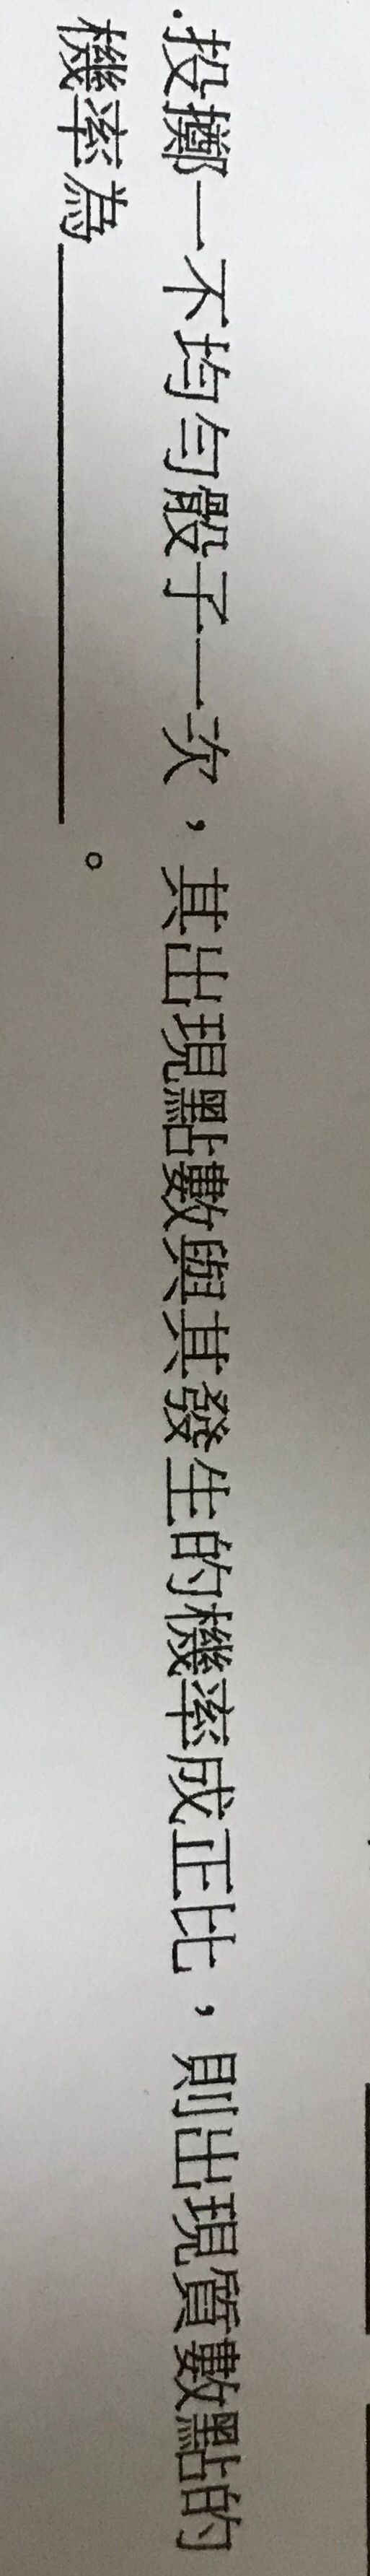 .投擲一不均勻骰子一次，其出現點數與其發生的機率成正比，則出現質數點的
機率為＿＿＿＿＿＿。